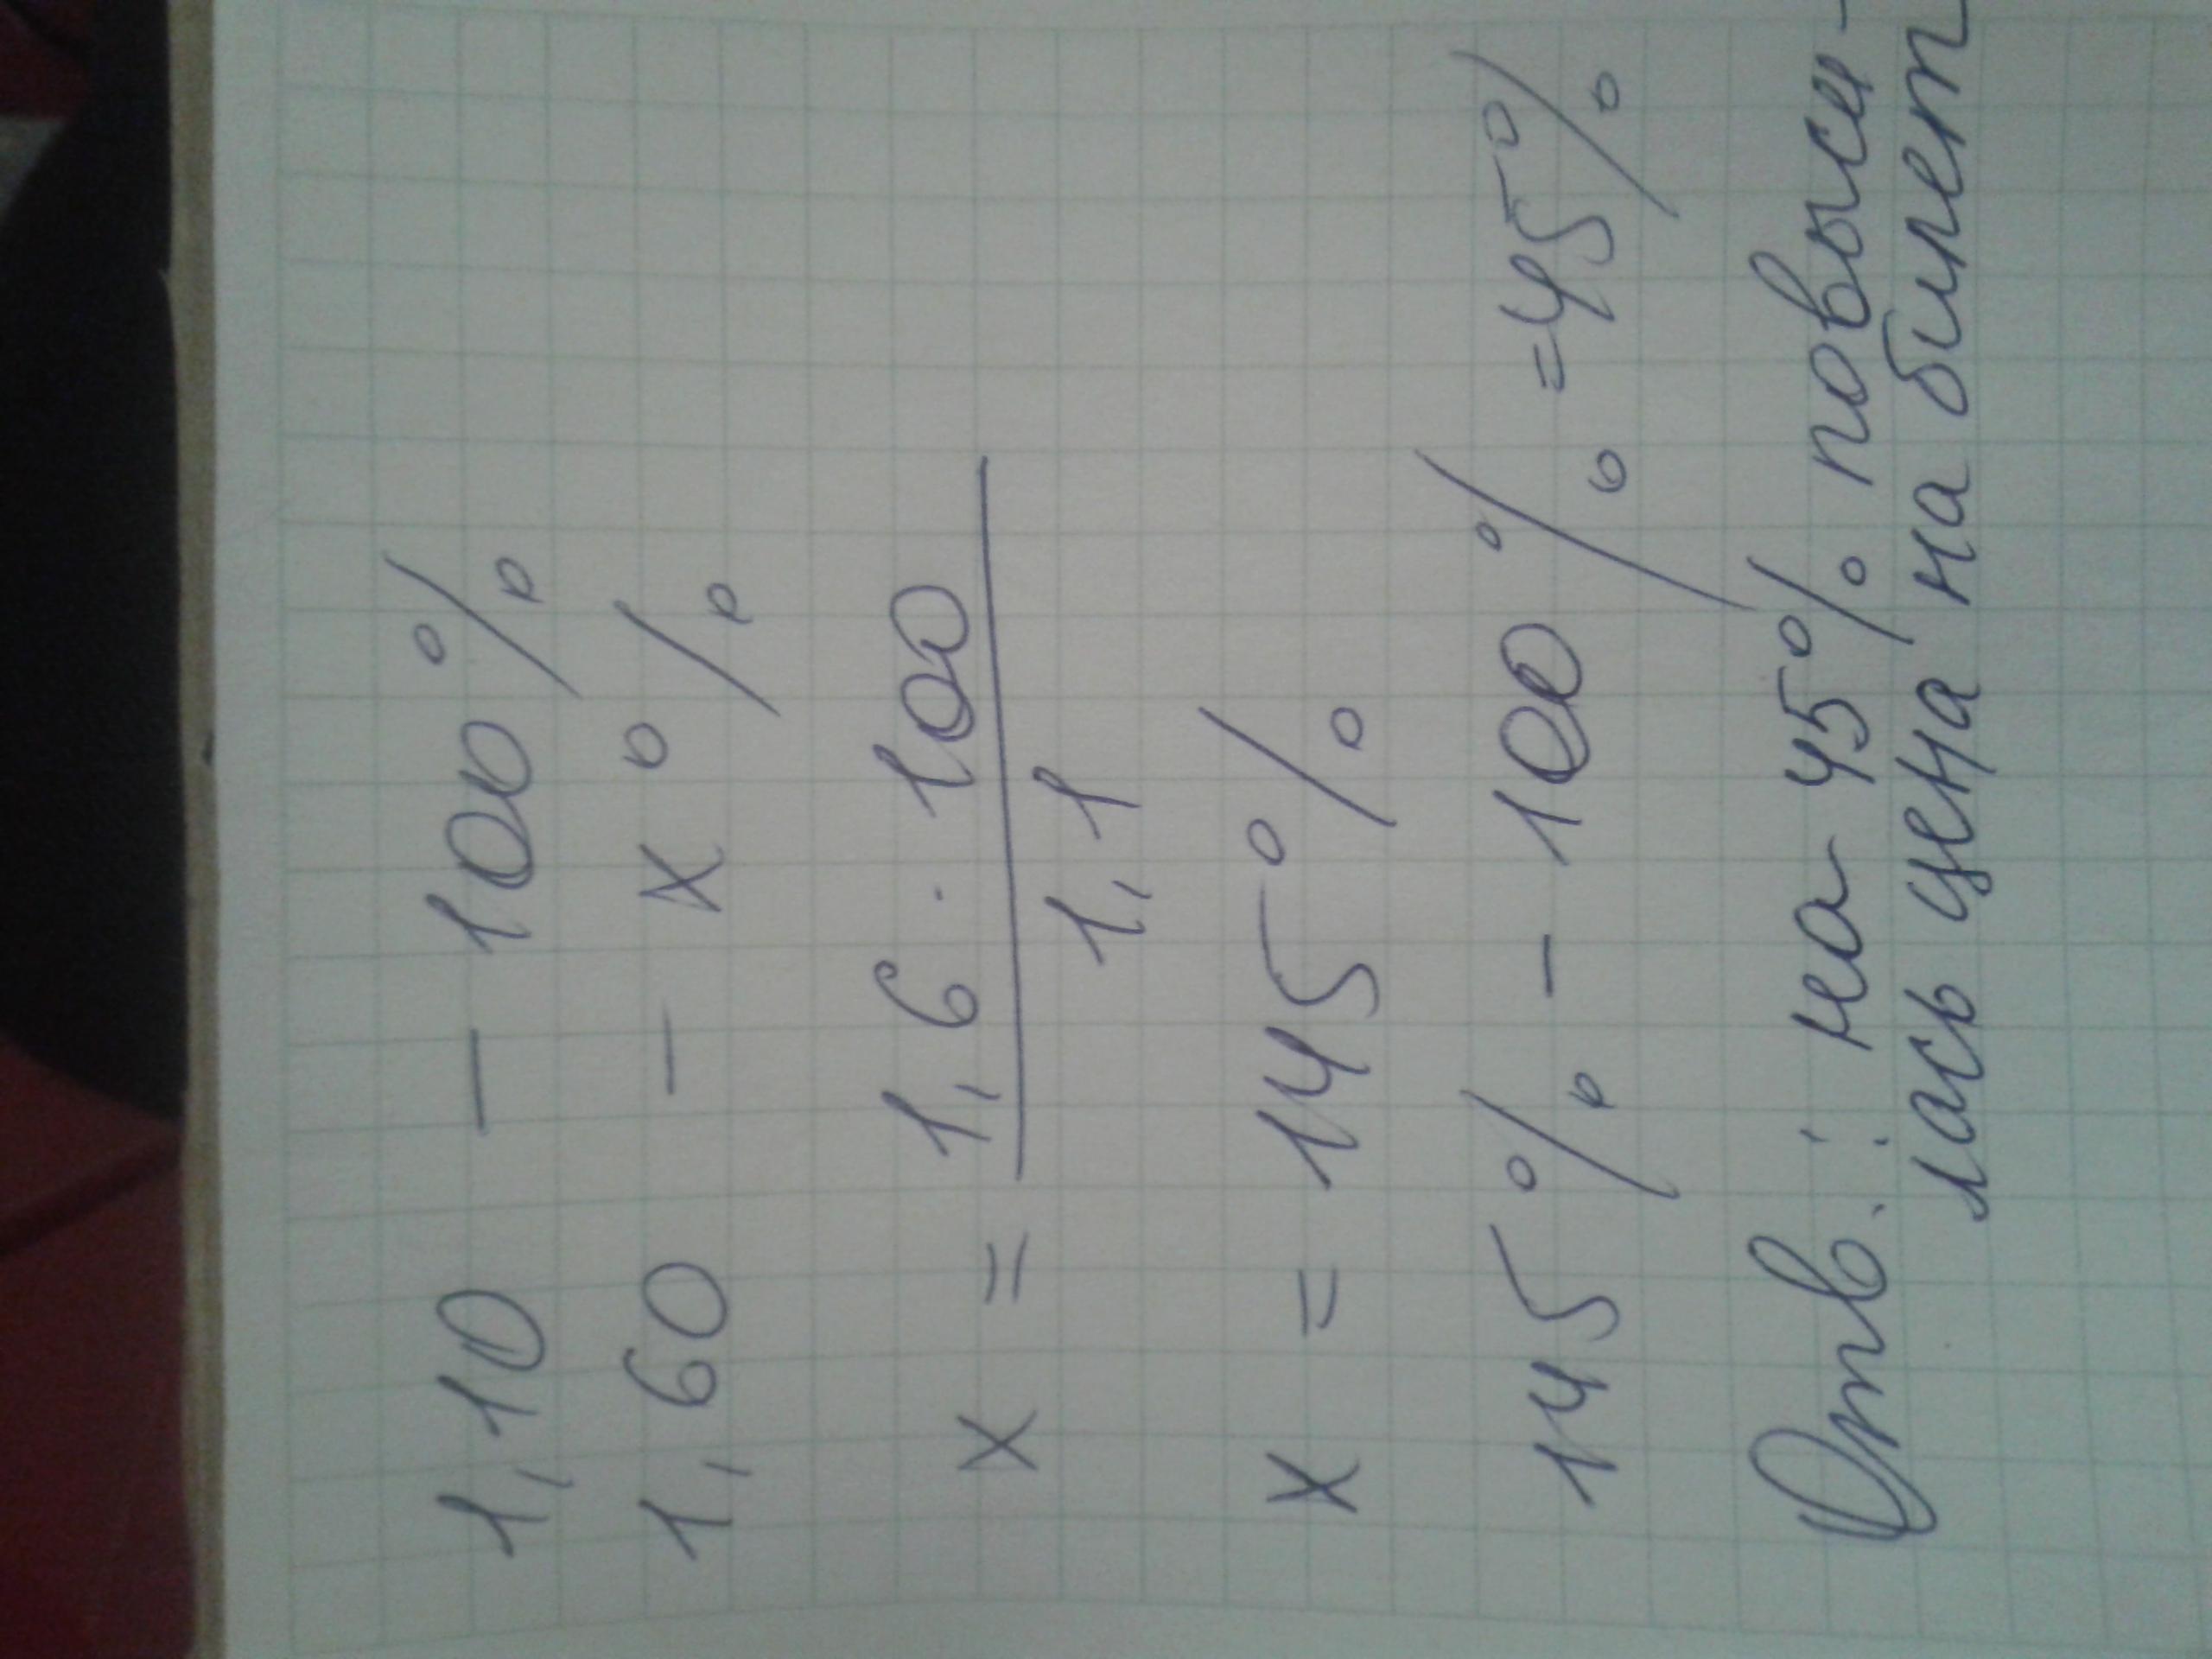 1,10 - 100%
1,60 - x%
x = 1,6 · 100
1,1
x = 145%
145% - 100% = 45%
Отв.: на 45% повыси-
лась цена на билет